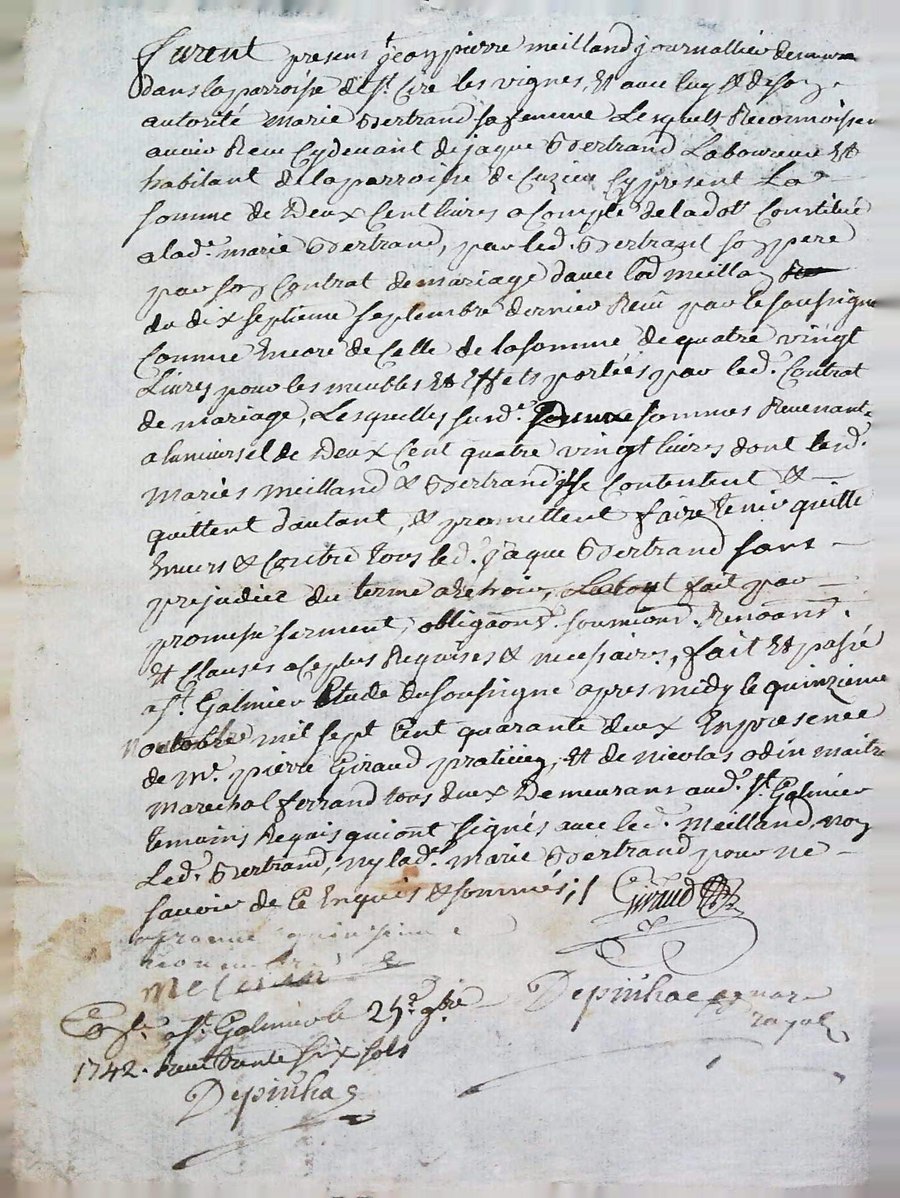 furent present jean pierre meilland journallier demurn
dans la parroisse de st. Cire les vignes, et avec luy et de son
autorité marie Bertrand sa femme Lesquels Reconnoissen
avoir Receu Cydevant de jaque Bertrand Laboureur et
habitant de la parroisse de Cuzieu Cy present La
somme de Deux Cent livres a Compte de la dot Constituée
a lad.e marie Bertrand, par led. Bertrand son pere
par son Contrat de mariage d'avec led meillan
du dix septieme septembre dernier Receu par le soussigné
Comme Encore de Celle de la somme de quatre vingt
Livres pour les meubles et Effets portées par led. Contrat
de mariage, Lesquelles susd.es sommes Revenant
a luniversel de Deux Cent quatre vingt livres dont lesd.
Mariés meilland & Bertrand se Contentent &
quittent d'autant, & promettent faire tenir quitte
Envers & Contre tous led. jaque Bertrand sans
prejudice du terme a Echoir, Le tout fait par
promesse serment, obligaons. soumions. Renoans.
et Clauses a ce plus Requises & necessaires, fait Et passé
a st. Galmier Etude du soussigné apres midy le quinzieme
octobre mil sept Cent quarante deux En presence
de Mr. pierre Giraud praticien, et de nicolas odin maitre
marechal ferrand tous deux Demeurans aud. st. Galmier
temoins Requis qui ont signés avec led. Meilland, non
Led. Bertrand, ny lad.e marie Bertrand pour ne
savoir de Ce Enquis & sommés; /
Giraud
quinzieme
novembre
Depinhac
Con.lé a st. Galmier le 25e. 9bre
1742. Receu trente six sols
Depinhac